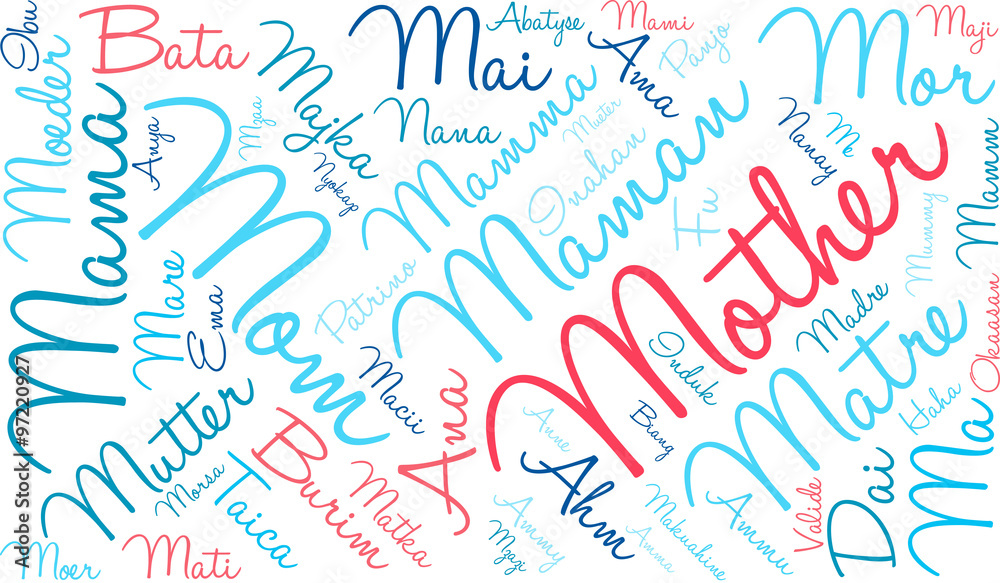 Ibu
Bata
Mai
Abatyse
Mami
Maji
Moeder
Majka
Ama
Panjo
Mor
Mama
Anya
Mzaa
Nana
Mamma
Mueter
Nanay
Me
Nyokap
Inahan
Maman
Fu
Mamm
Mom
Mother
Mummy
Mare
Ema
Patrino
Madre
Okaasan
Macii
Induk
Matre
Haha
Mutter
Burim
Ana
Anne
Brang
Ma
Morsa
Taica
Matka
Ahm
Ammu
Valide
Dai
Moer
Mati
Mzazi
Ammy
Amma
Makuahine
Adobe Stock | #97220927
Adobe Stock